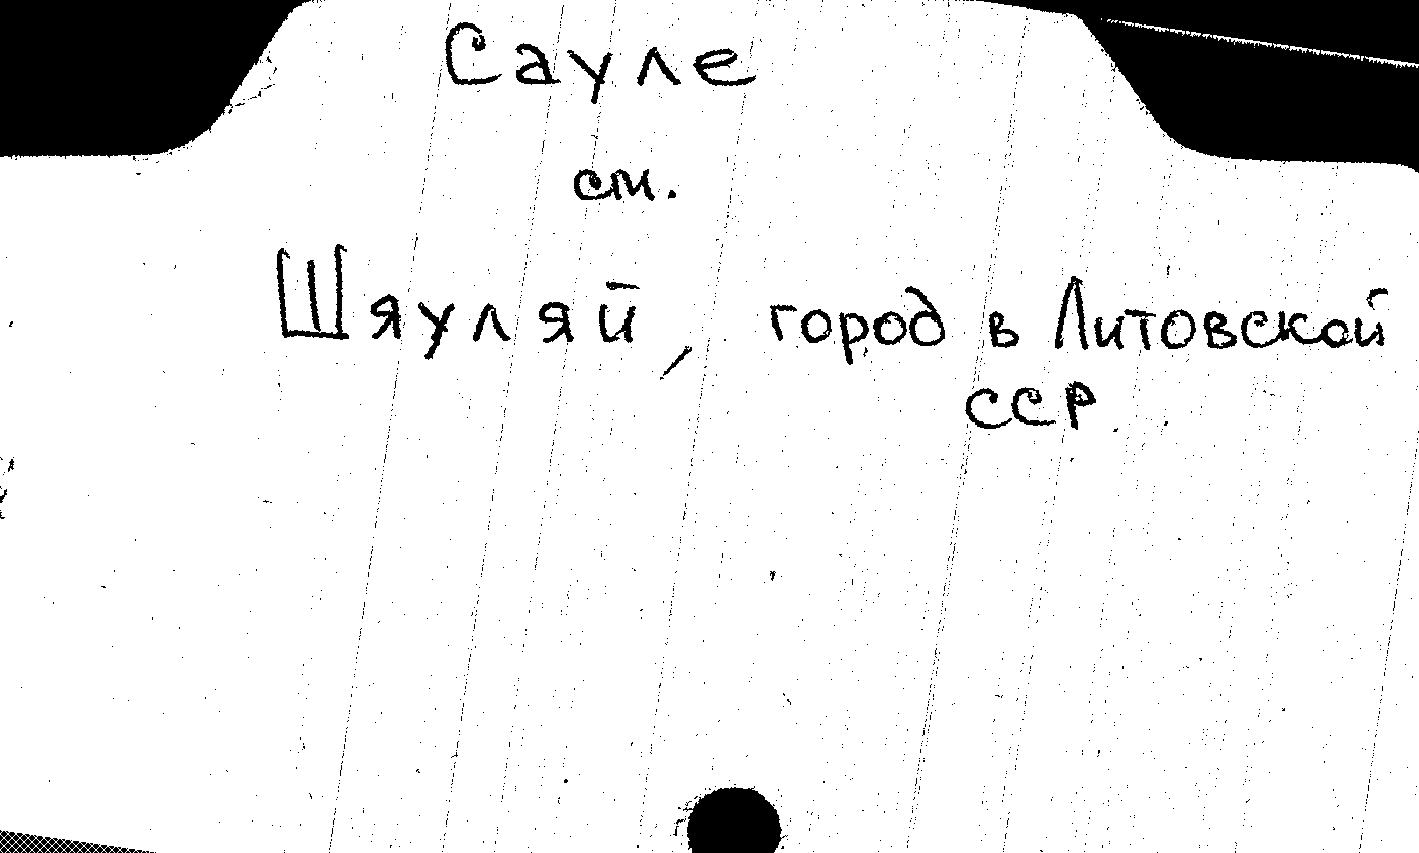 Сауле
см.
Шяуляй, город в Литовской
ССР